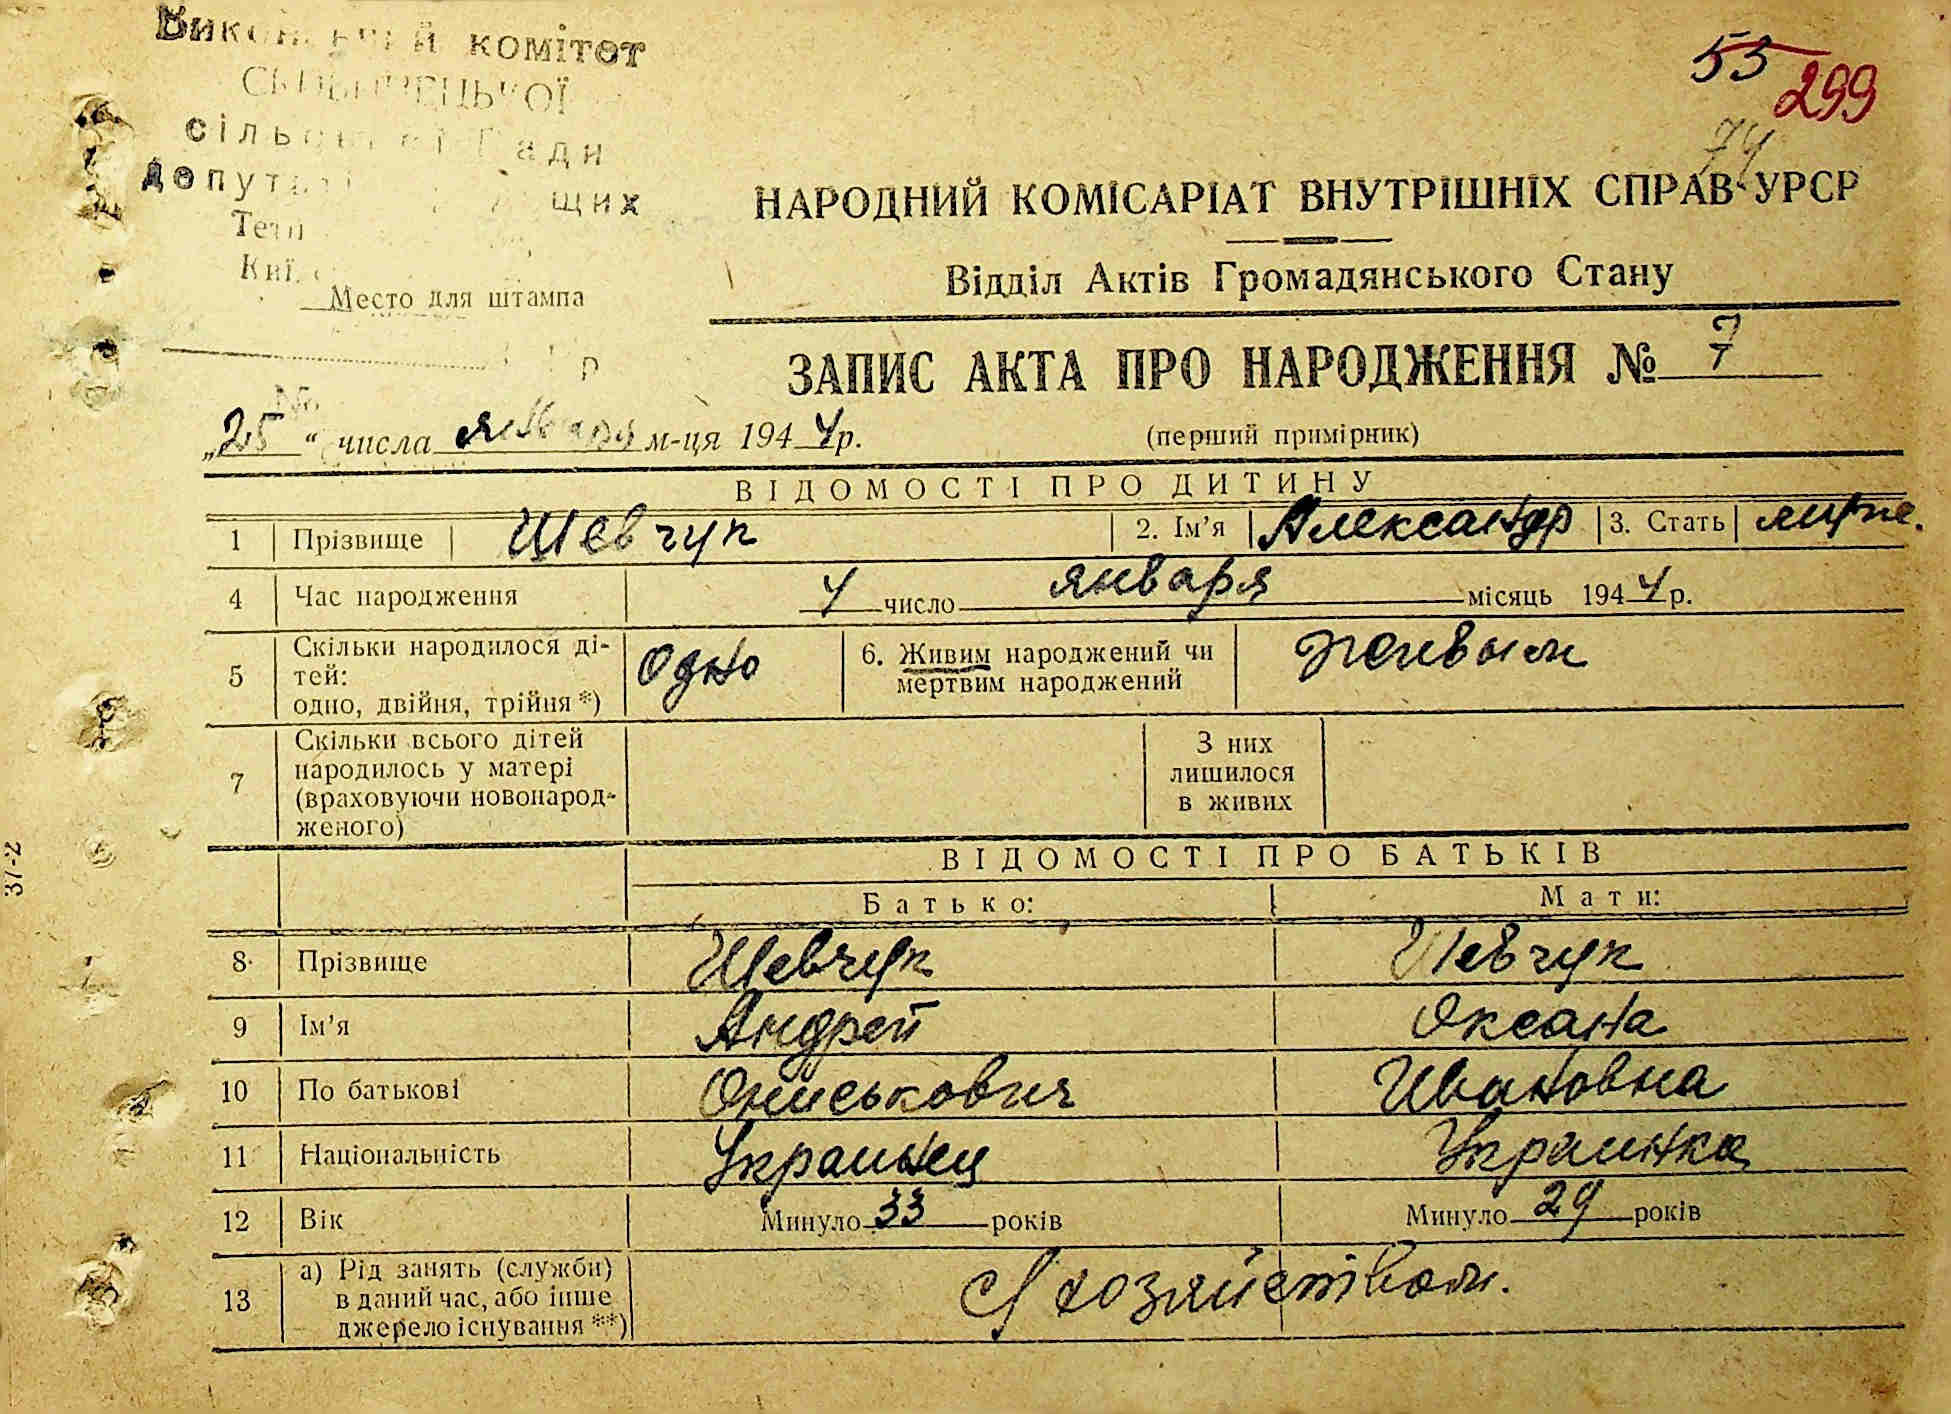 комітет
сіль
депут щих
Місто для штампа
55 299
74
НАРОДНИЙ КОМІСАРІАТ ВНУТРІШНІХ СПРАВ УРСР
Відділ Актів Громадянського Стану
ЗАПИС АКТА ПРО НАРОДЖЕННЯ № 7
„25“ числа января м-ця 1944р.
(перший примірник)
ВІДОМОСТІ ПРО ДИТИНУ
1 Прізвище Шевчук 2. Ім’я Александр 3. Стать
4 Час народження 4 число января місяць 1944 р.
5 Скільки народилося ді-
тей:
одно, двійня, трійня *) Одно 6. Живим народжений чи
мертвим народжений живым
7 Скільки всього дітей
народилось у матері
(враховуючи новонарод-
женого)
З них
лишилося
в живих
ВІДОМОСТІ ПРО БАТЬКІВ
Батько: Мати:
8 Прізвище Шевчук Шевчук
9 Ім’я Андрей Оксана
10 По батькові Ониськович Ивановна
11 Національність Украинец Украинка
12 Вік Минуло 33 років Минуло 29 років
13 а) Рід занять (служби)
в даний час, або інше
джерело існування **) хозяйством.
37-2